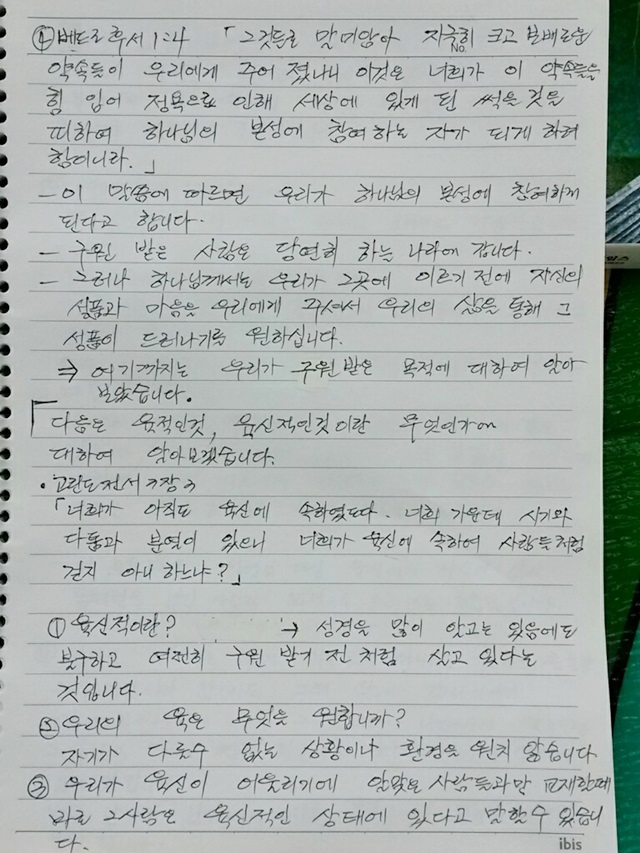 ④ 벧드로 후서 1:4 「그것들로 말미암아 지극히 크고 보배로운
No.
약속들이 우리에게 주어 졌나니 이것은 너희가 이 약속들을
힘 입어 정욕으로 인해 세상에 있게 된 썩을 것을
피하여 하나님의 본성에 참여하는 자가 되게 하려
함이니라.」
- 이 말씀에 따르면 우리가 하나님의 본성에 참여하게
된다고 합니다.
- 구원 받은 사람은 당연히 하늘 나라에 갑니다.
- 그러나 하나님께서는 우리가 그곳에 이르기 전에 자신의
성품과 마음을 우리에게 주셔서 우리의 삶을 통해 그
성품이 드러나기를 원하십니다.
⇒ 여기까지는 우리가 구원받은 목적에 대하여 알아
보았습니다.
다음은 육적인것, 육신적인것이란 무엇인가에
대하여 알아보겠습니다.
· 고린도전서 3장 3
「너희가 아직도 육신에 속하였도다. 너희 가운데 시기와
다툼과 분열이 있으니 너희가 육신에 속하여 사람들처럼
걷지 아니 하느냐?」
① 육신적이란? → 성경을 많이 알고는 있음에도
불구하고 여전히 구원 받기 전 처럼 살고 있다는
것입니다.
② 우리의 육은 무엇을 원합니까?
자기가 다룰수 없는 상황이나 환경을 원치 않습니다
③ 우리가 육신이 어울리기에 알맞은 사람들과만 교제한다면
바로 그사람은 육신적인 상태에 있다고 말할수 있습니
다.
ibis